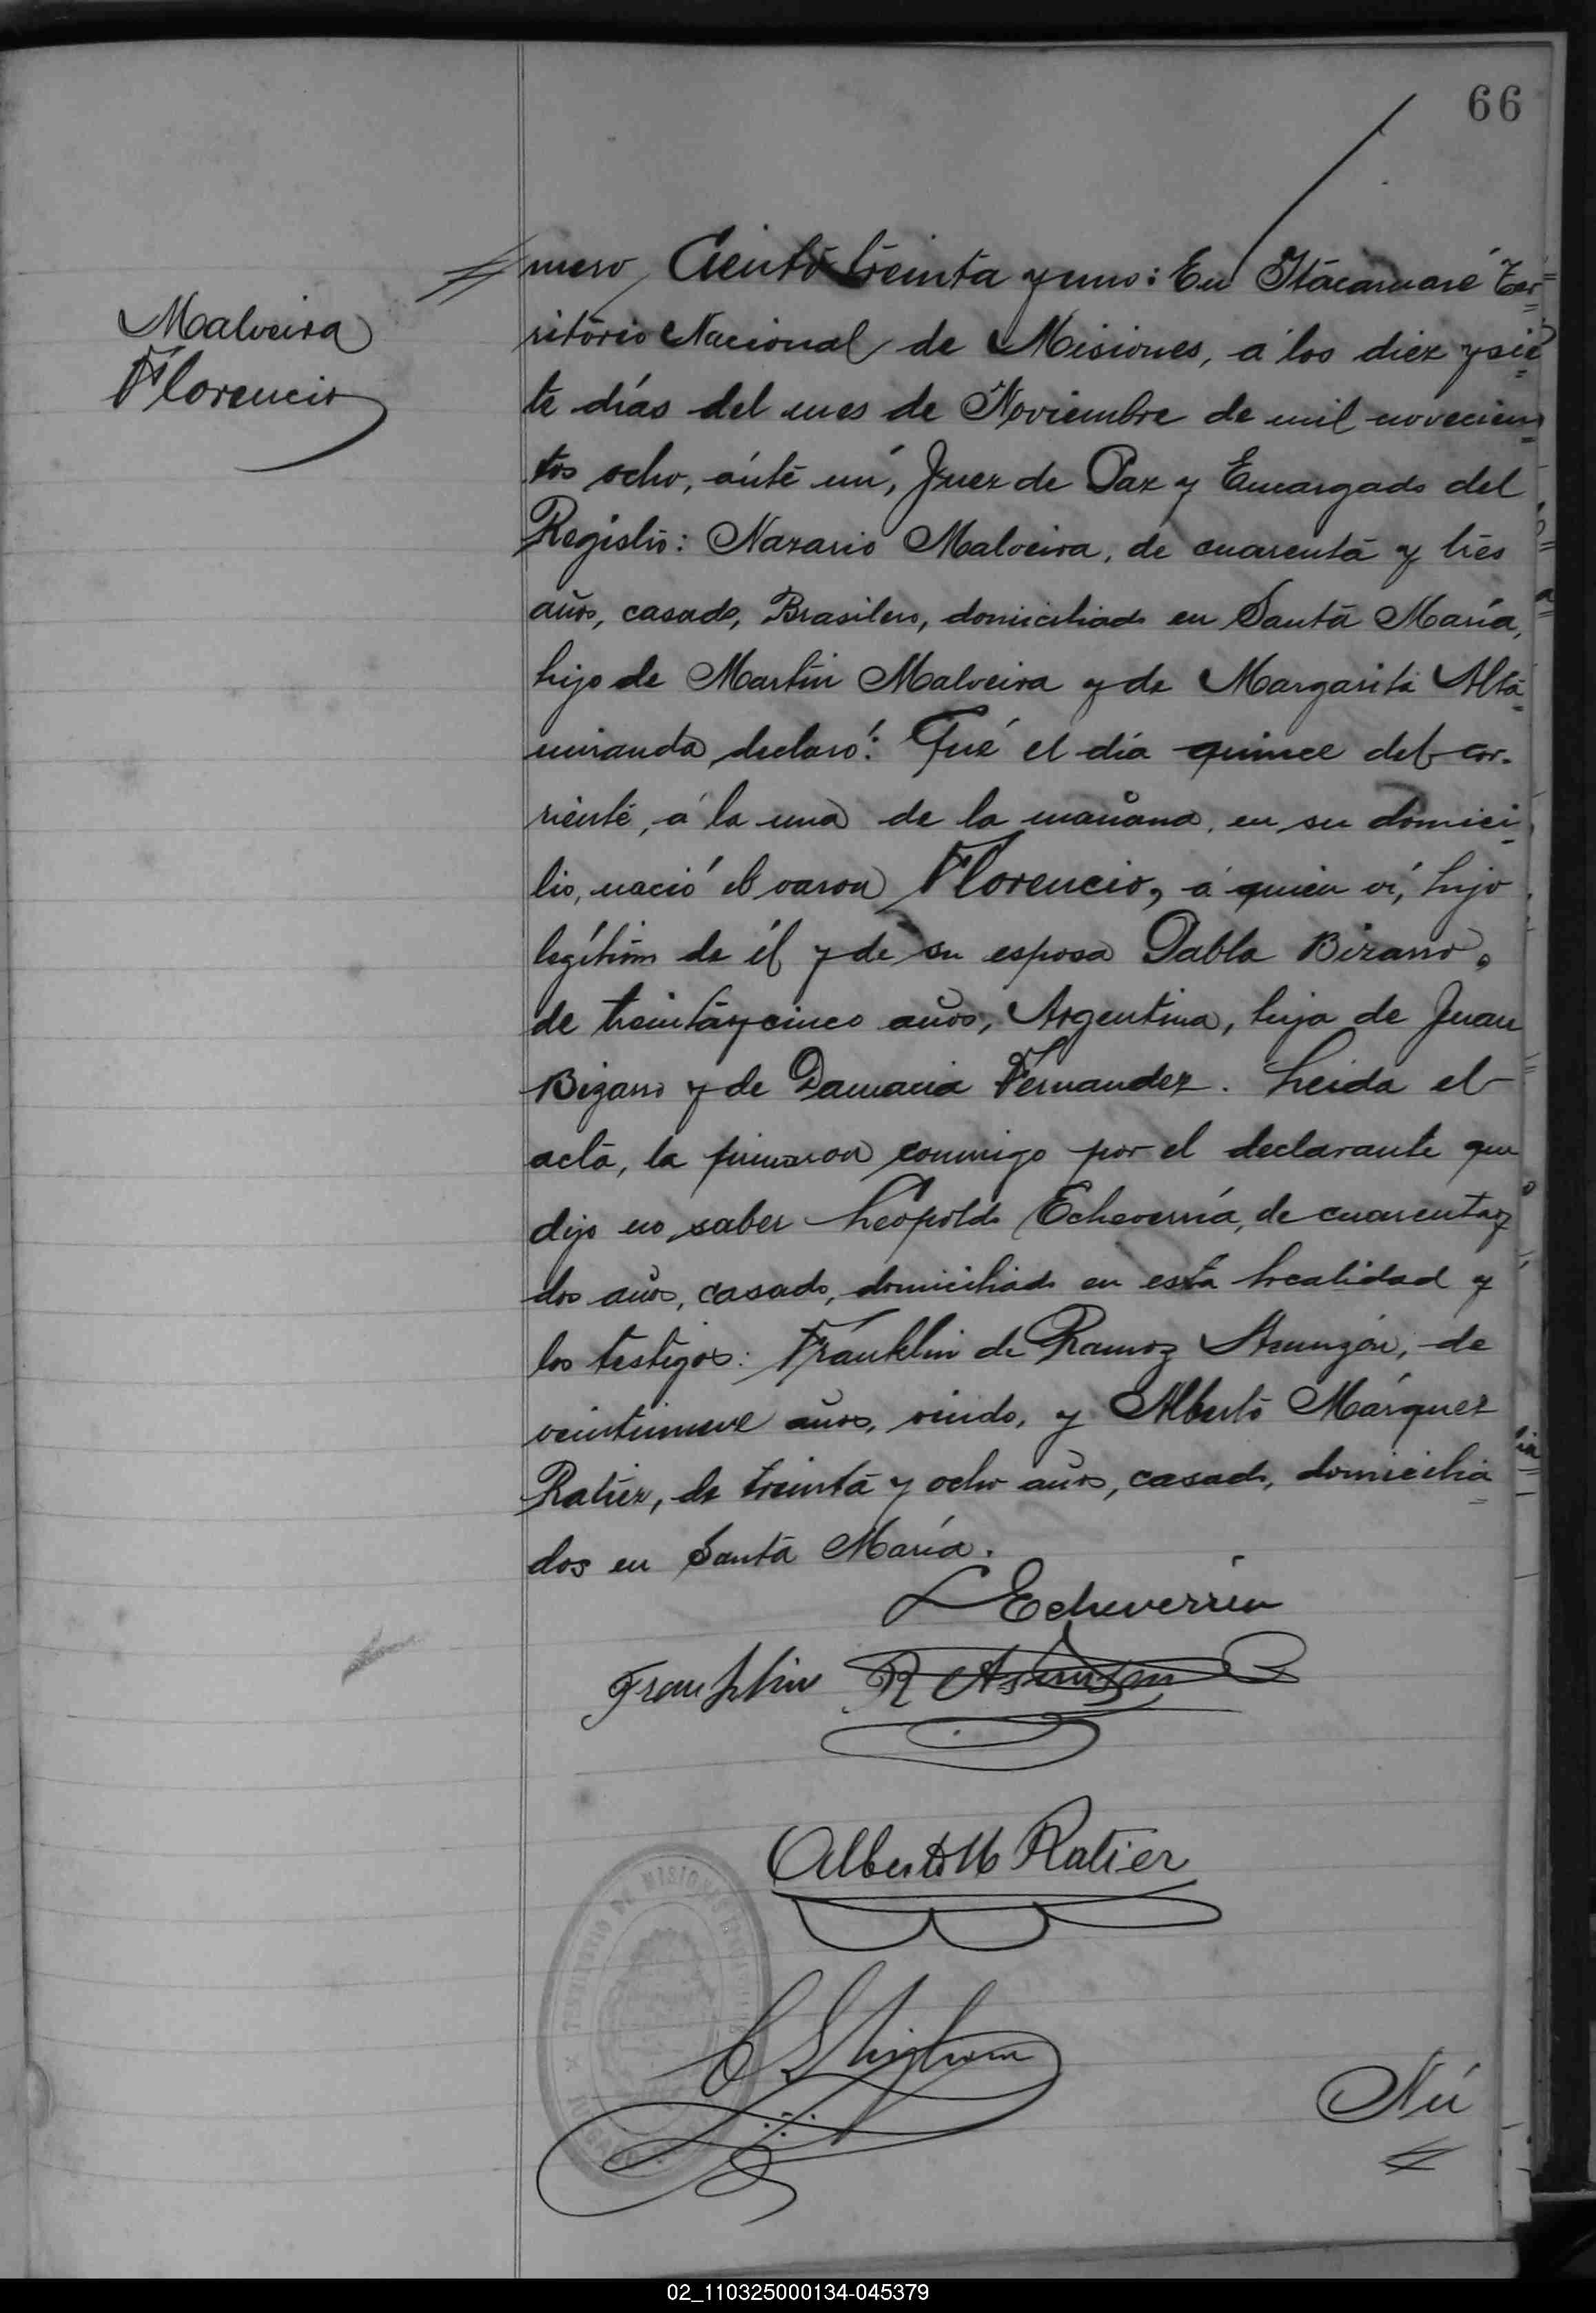 66
Malveira
Florencio
mero Ciento treinta y uno: En Itacaruaré Ter
ritorio Nacional de Misiones, á los diez y sie
te días del mes de Noviembre de mil novecien
tos ocho, ánte mí, Juez de Paz y Encargado del
Registro: Nazario Malveira, de cuarenta y tres
años, casado, Brasilero, domiciliado en Santa María,
hijo de Martín Malveira y de Margarita Alta
miranda declaró: Qué el día quince del cor-
riente, á la una de la mañana, en su domici
lio, nació el varon Florencio, á quien ví, hijo
legítimo de él y de su esposa Pabla Bizarro,
de treinta y cinco años, Argentina, hija de Juan
Bizarro y de Damacia Fernandez. Leida el
acta, la firmaron conmigo por el declarante que
dijo no saber Leopoldo Echeverría, de cuarenta y
dos años, casado, domiciliado en esta localidad y
los testigos: Franklin de Ramoz Asunzón, de
veintinueve años, viudo, y Alberto Márquez
Ratier, de treinta y ocho años, casado, domicilia
dos en Santa María.
L Echeverria
Franklin R Asunson
Alberto M Ratier
TERRITORIO DE MISIONES
Nú
02_110325000134-045379